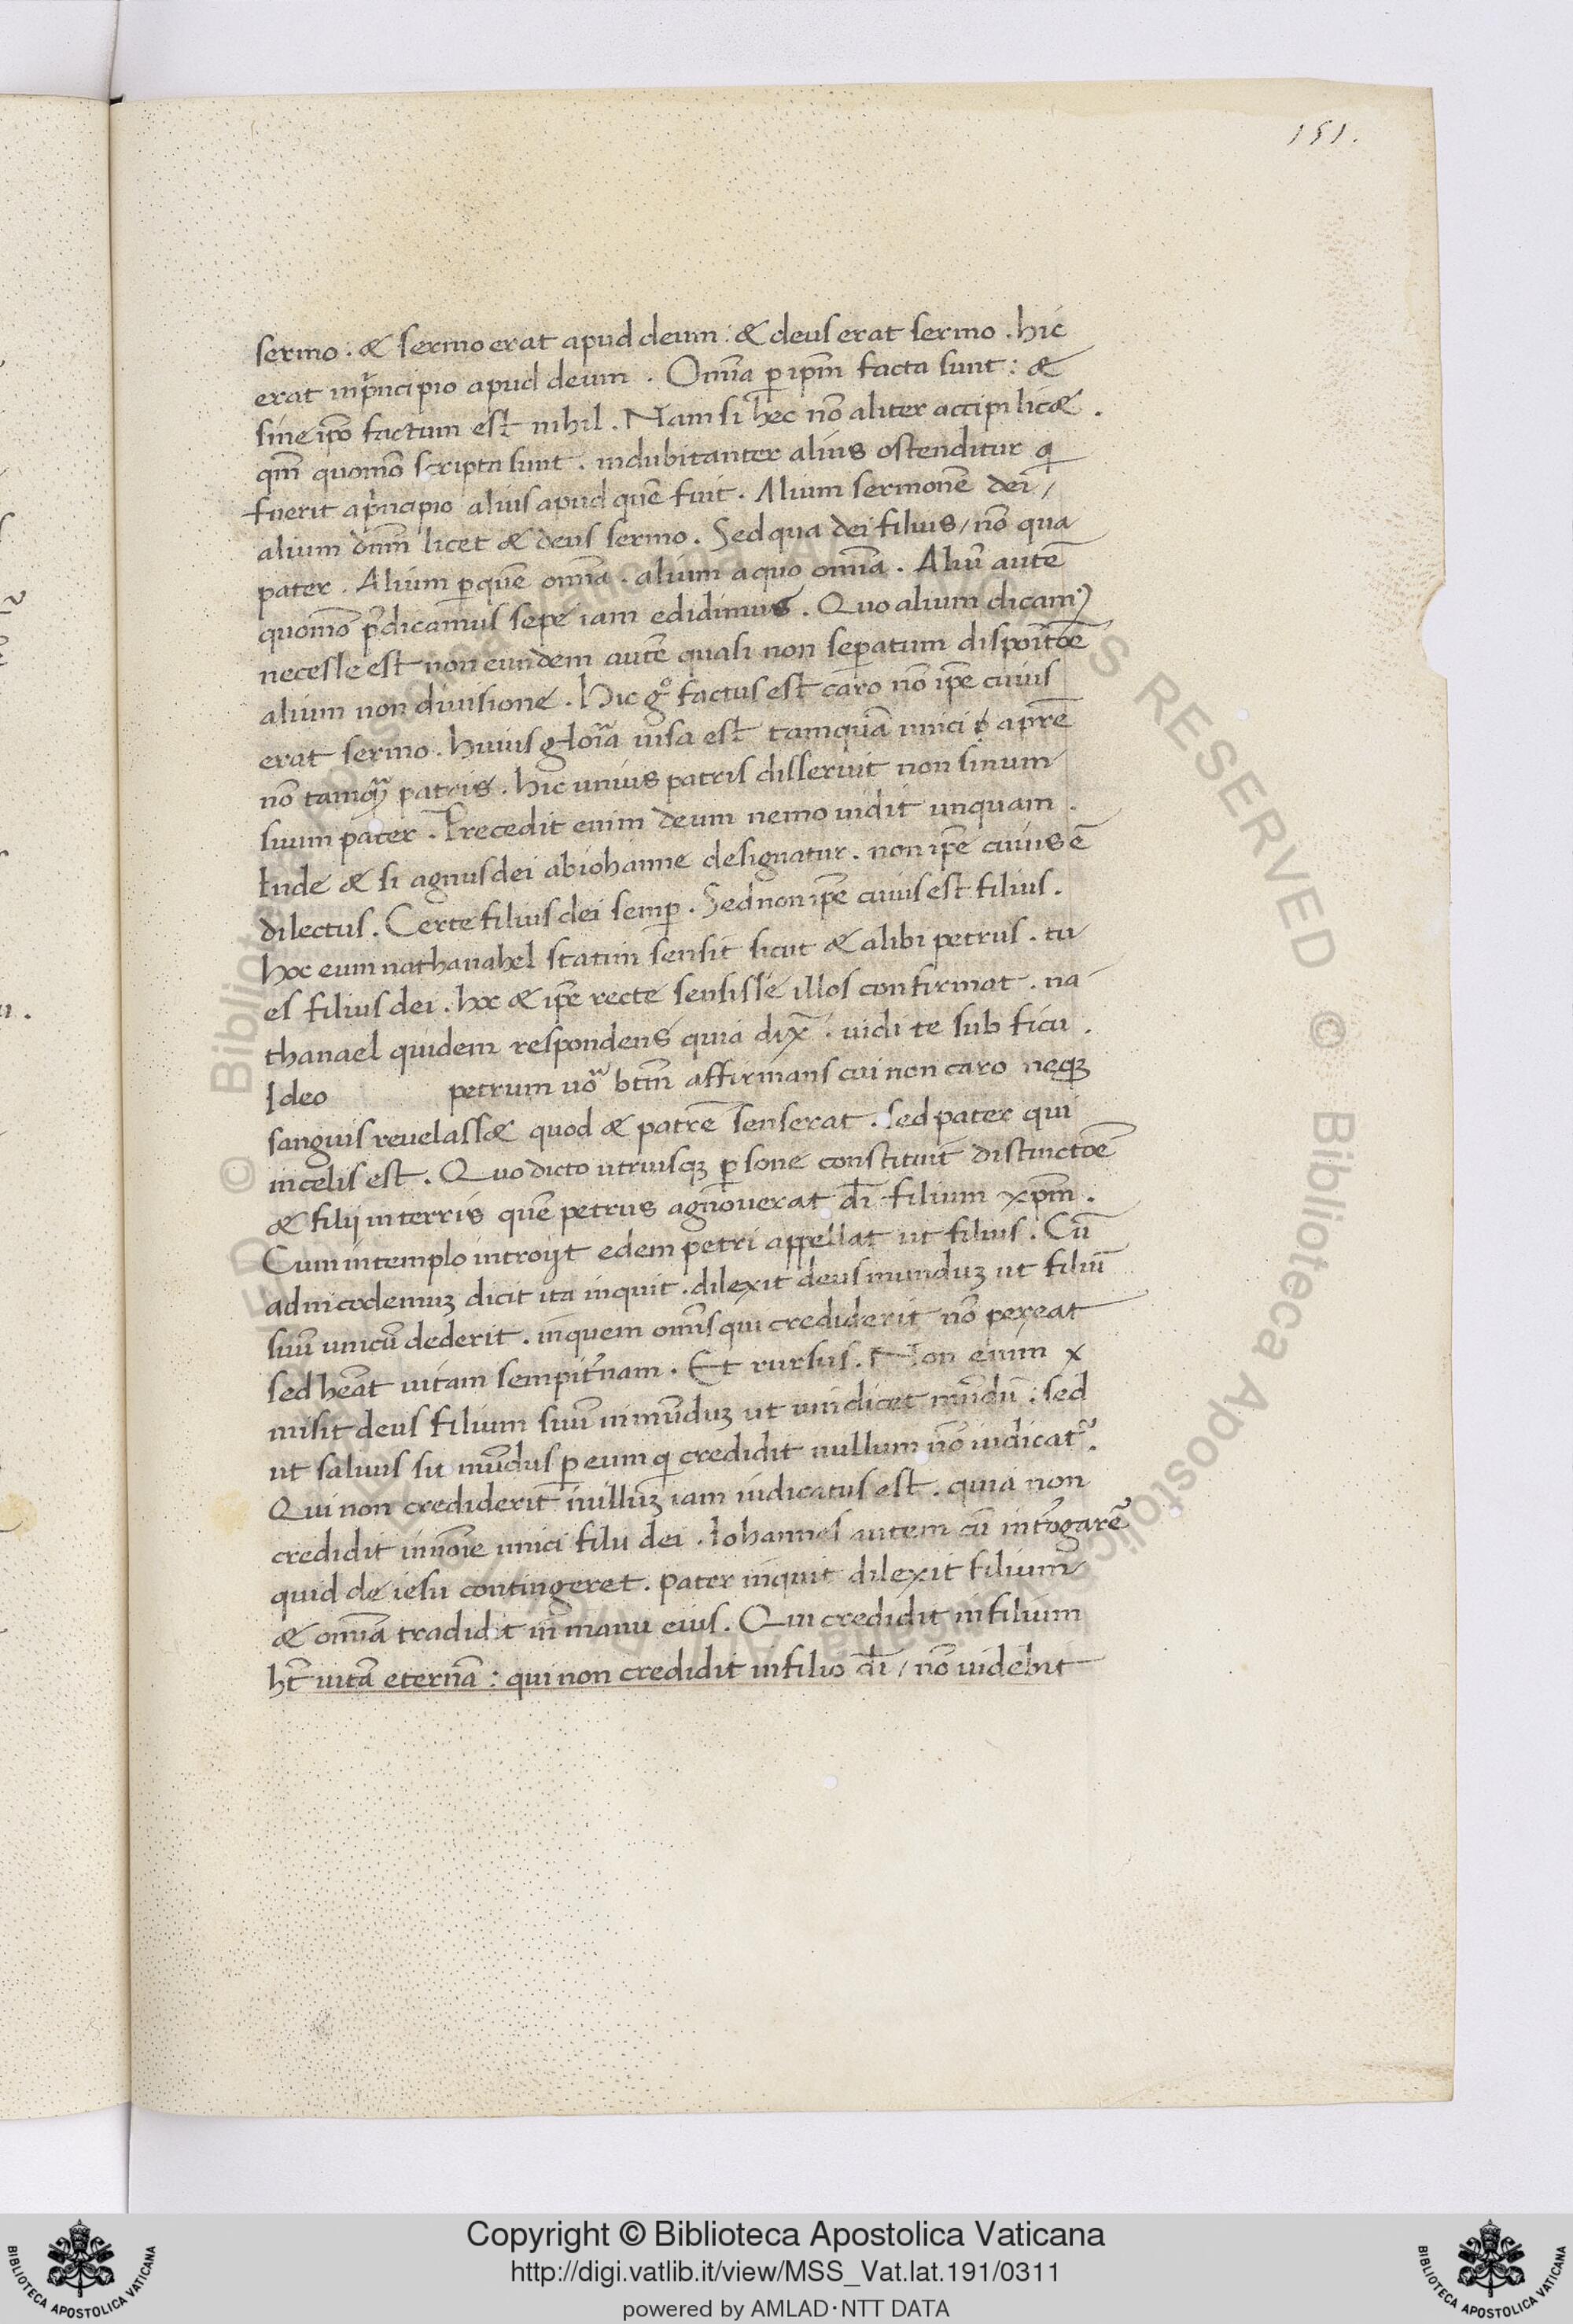 151.
sermo . & sermo erat apud deum : & deus erat sermo . hic
erat inp̃ncipio apud deum . Om̃ia ꝑ ip̃m facta sunt : &
sine ip̃o factum est nihil . Nam si hec nõ aliter accipi lic& .
qm̃ quomõ scripta sunt . indubitanter alius ostenditur q
fuerit ap̃ncipio alius apud quẽ fuit . Alium sermonẽ dei /
alium dñm licet & deus sermo . Sed qua dei filius / nõ qua
pater . Alium ꝑquẽ om̃ia . alium aquo om̃ia . Aliũ autẽ
quomõ p̃dicamus sepe iam edidimus . Quo alium dicam⁹
necesse est non eundem autẽ quasi non seꝑatum dispoitõẽ
alium non diuisione . Hic gº factus est caro nõ ip̃e cuius
erat sermo . huius gloĩa uisa est tamquã unici aprẽ
nõ tamq̃ patris . hic unius patris disseruit non sinum
suum pater . Precedit enim deum nemo uidit unquam .
Inde & si agnus dei abiohanne designatur . non ip̃e cuius ẽ
dilectus . Certe filius dei semꝑ . Sed non ip̃e cuius est filius .
hoc eum nathanahel statim sensit sicut & alibi petrus . tu
es filius dei . hoc & ip̃e recte sensisse illos confirmat . na
thanael quidem respondens quia dix̃ . uidi te sub ficu .
Ideo petrum uõ btm̃ affirmans cui non caro neqꝫ
sanguis reuelass& quod & patrẽ senserat . sed pater qui
incelis est . Quo dicto utriusqꝫ ꝑsone constituit distinctõẽ
& filij interris quẽ petrus agnouerat dĩ filium xp̃m .
Cum intemplo introijt edem petri appellat ut filius . Cũ
adnicodemuꝫ dicit ita inquit . dilexit deus munduꝫ ut filiũ
suũ unicũ dederit . inquem om̃is qui crediderit nõ pereat
sed hẽat uitam sempit̃nam . Et rursus . Non enim x
misit deus filium suũ inmũduꝫ ut uindicet mũdũ : sed
ut saluus sit mũdus ꝑ eum q credidit nullum nõ iudicat̃ .
Qui non crediderit nulluꝫ iam iudicatus est . quia non
credidit innoĩe unici filii dei . Iohannes autem cũ int̃ogarẽ
quid de iesu contingeret . pater inquit dilexit filium
& om̃ia tradidit in manu eius . Qui credidit infilium
ht̃ uitã eternã : qui non credidit infilio dĩ / nõ uidebit
Copyright © Biblioteca Apostolica Vaticana
http://digi.vatlib.it/view/MSS_Vat.lat.191/0311
powered by AMLAD·NTT DATA